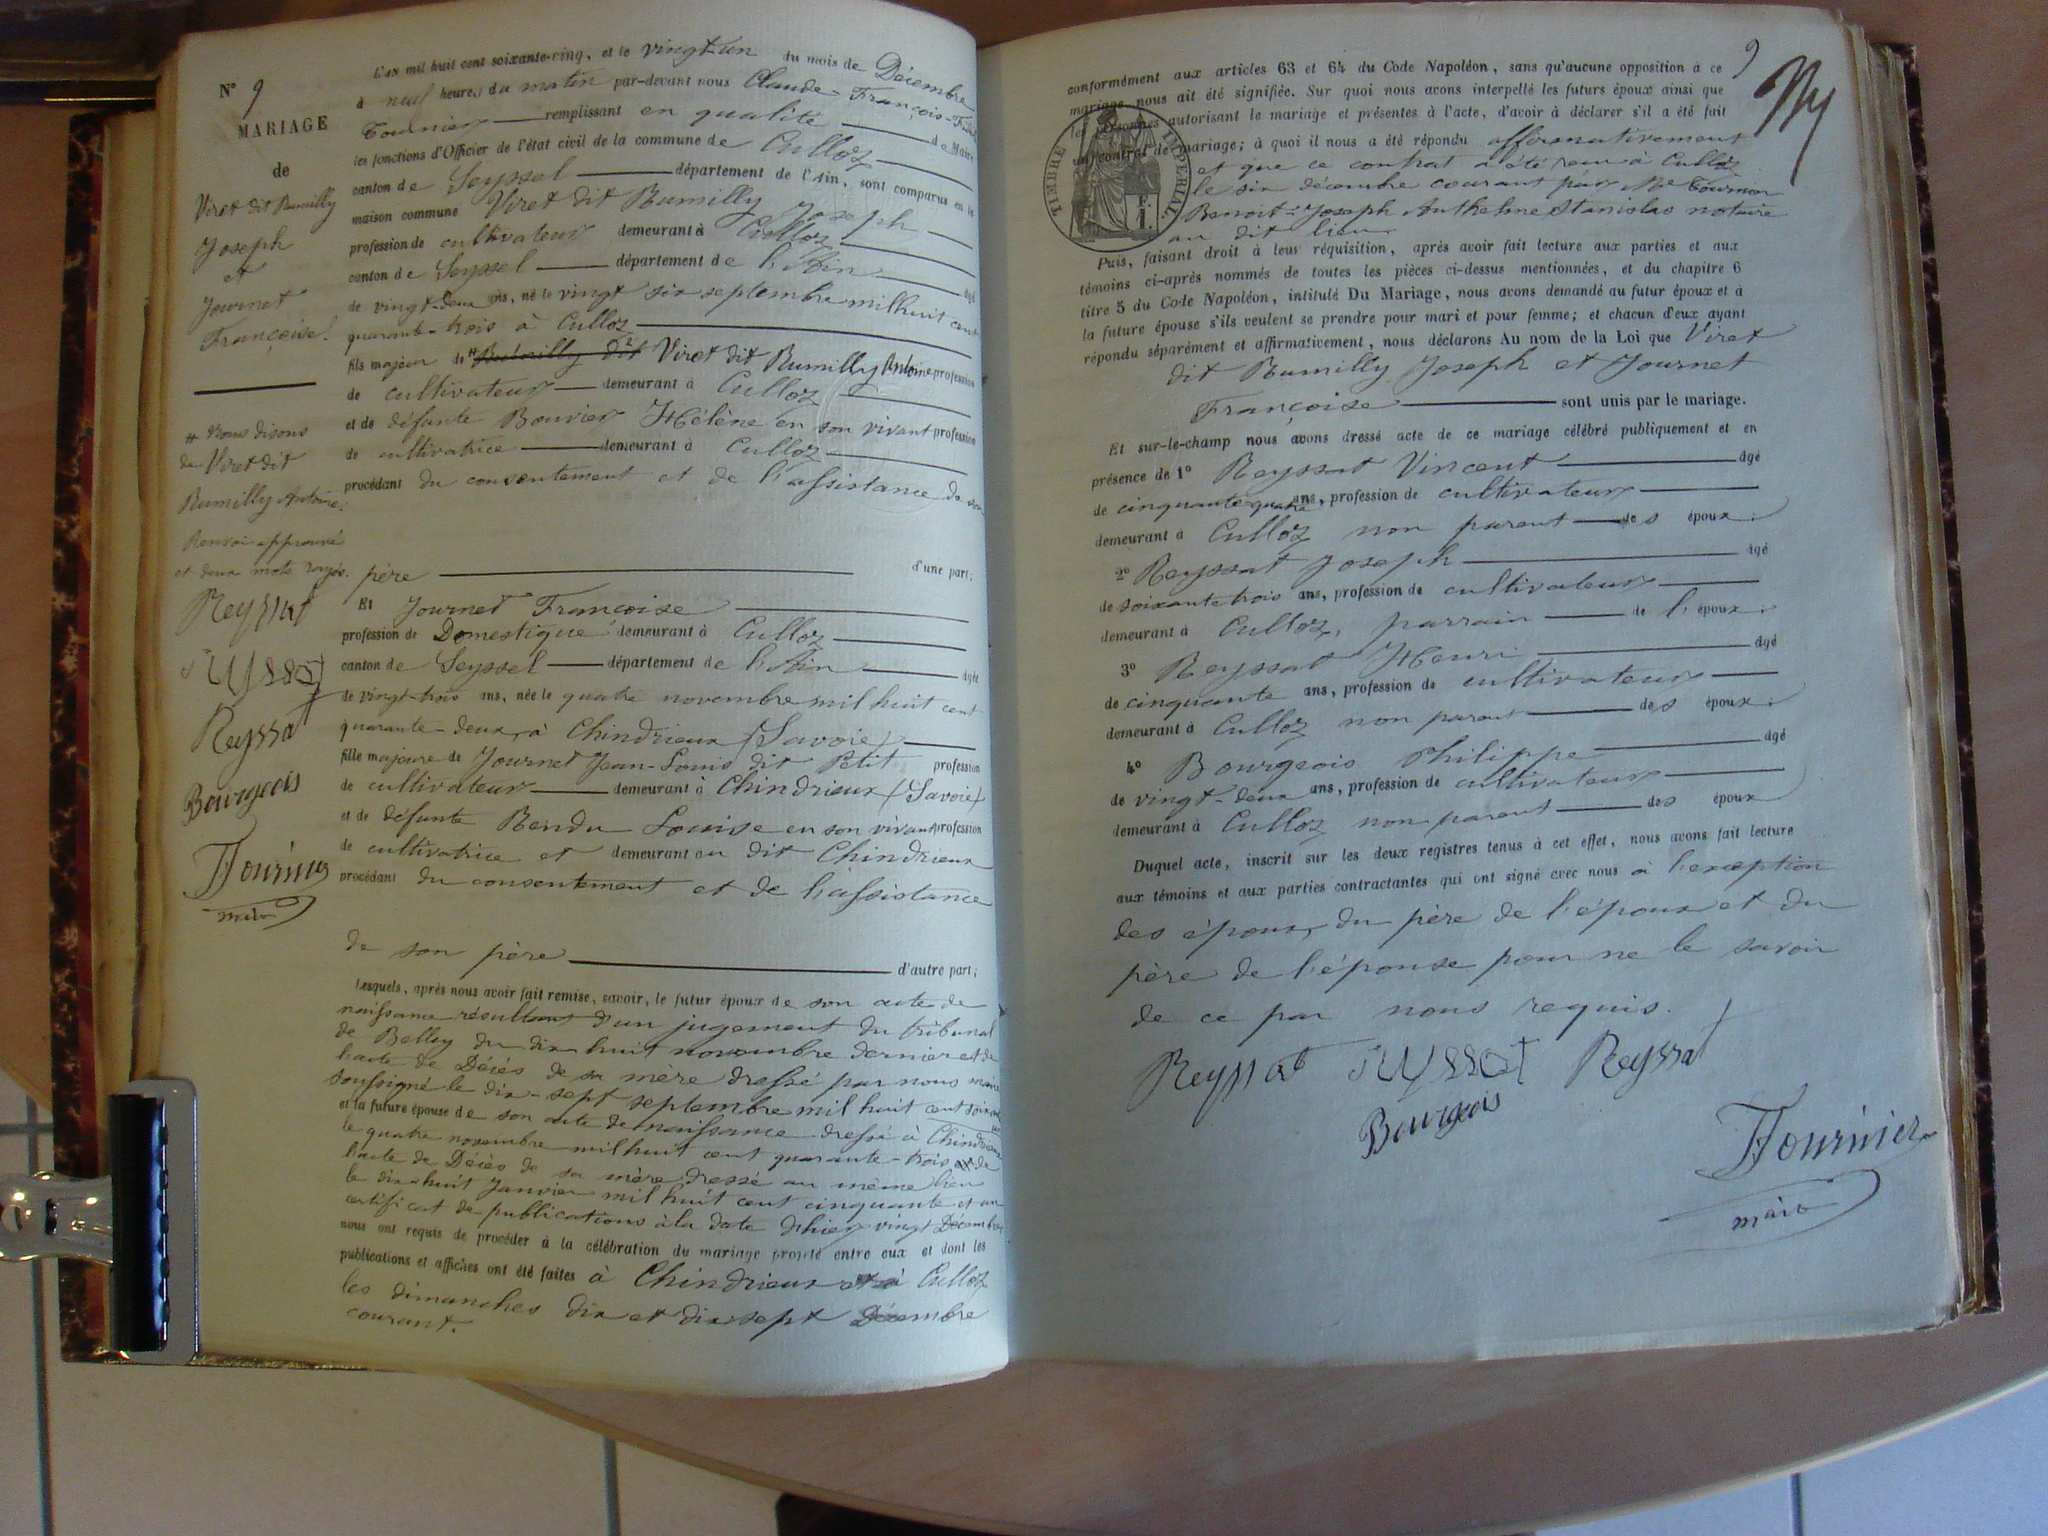 N° 9
MARIAGE
de
Viret dit Rumilly
Joseph
et
Journet
Françoise.
# Nous disons
de Viret dit
Rumilly Antoine.
Renvoi approuvé
et deux mots rayés.
Reyssat
Reyssat
Bourgeois
Fournier
maire
L'an mil huit cent soixante-cinq, et le vingt-un du mois de Décembre
à neuf heures du matin par-devant nous Claude-François-
Fournier remplissant en qualité de Maire
les fonctions d'Officier de l'état civil de la commune de Culloz
canton de Seyssel département de l'Ain, sont comparus en la
maison commune Viret dit Rumilly Joseph
profession de cultivateur demeurant à Culloz
canton de Seyssel département de l'Ain âgé
de vingt-deux ans, né le vingt six septembre mil huit cent
quarante-trois à Culloz
fils majeur de # Viret dit Rumilly Antoine profession
de cultivateur demeurant à Culloz
et de défunte Bouvier Hélène en son vivant profession
de cultivatrice demeurant à Culloz
procédant du consentement et de l'assistance de son
père d'une part;
Et Journet Françoise
profession de Domestique demeurant à Culloz
canton de Seyssel département de l'Ain âgée
de vingt-trois ans, née le quatre novembre mil huit cent
quarante-deux, à Chindrieux (Savoie)
fille majeure de Journet Jean-Louis dit Petit profession
de cultivateur demeurant à Chindrieux (Savoie)
et de défunte Rendu Louise en son vivant profession
de cultivatrice et demeurant au dit Chindrieux
procédant du consentement et de l'assistance
de son père d'autre part;
Lesquels, après nous avoir fait remise, savoir, le futur époux de son acte de
naissance résultant d'un jugement du tribunal
de Belley du dix huit novembre dernier et de
l'acte de Décès de sa mère dressé par nous maire
soussigné le dix-sept septembre mil huit cent
et la future épouse de son acte de naissance dressé à Chindrieux
le quatre novembre mil huit cent quarante-trois et de
l'acte de Décès de sa mère dressé au même lieu
le dix-huit Janvier mil huit cent cinquante et un
certificat de publications à la date d'hier vingt Décembre
nous ont requis de procéder à la célébration du mariage projeté entre eux et dont les
publications et affiches ont été faites à Chindrieux et à Culloz
les dimanches dix et dix sept Décembre
courant.
9
conformément aux articles 63 et 64 du Code Napoléon, sans qu'aucune opposition à ce
mariage nous ait été signifiée. Sur quoi nous avons interpellé les futurs époux ainsi que
les personnes autorisant le mariage et présentes à l'acte, d'avoir à déclarer s'il a été fait
un contrat de mariage; à quoi il nous a été répondu affirmativement
et que ce contrat a été reçu à Culloz
le six décembre courant par Me
Benoit-Joseph Anthelme Stanislas notaire
au dit lieu.
TIMBRE IMPERIAL.
F.
1.
Puis, faisant droit à leur réquisition, après avoir fait lecture aux parties et aux
témoins ci-après nommés de toutes les pièces ci-dessus mentionnées, et du chapitre 6
titre 5 du Code Napoléon, intitulé Du Mariage, nous avons demandé au futur époux et à
la future épouse s'ils veulent se prendre pour mari et pour femme; et chacun d'eux ayant
répondu séparément et affirmativement, nous déclarons Au nom de la Loi que Viret
dit Rumilly Joseph et Journet
Françoise sont unis par le mariage.
Et sur-le-champ nous avons dressé acte de ce mariage célébré publiquement et en
présence de 1° Reyssat Vincent âgé
de cinquante quatre ans, profession de cultivateur
demeurant à Culloz non parent des époux.
2° Reyssat Joseph âgé
de soixante trois ans, profession de cultivateur
demeurant à Culloz, parrain de l'époux.
3° Reyssat Henri âgé
de cinquante ans, profession de cultivateur
demeurant à Culloz non parent des époux.
4° Bourgeois Philippe âgé
de vingt-deux ans, profession de cultivateur
demeurant à Culloz non parent des époux
Duquel acte, inscrit sur les deux registres tenus à cet effet, nous avons fait lecture
aux témoins et aux parties contractantes qui ont signé avec nous à l'exception
des époux, du père de l'époux et du
père de l'épouse pour ne le savoir
de ce par nous requis.
Reyssat Reyssat
Bourgeois
Fournier
maire